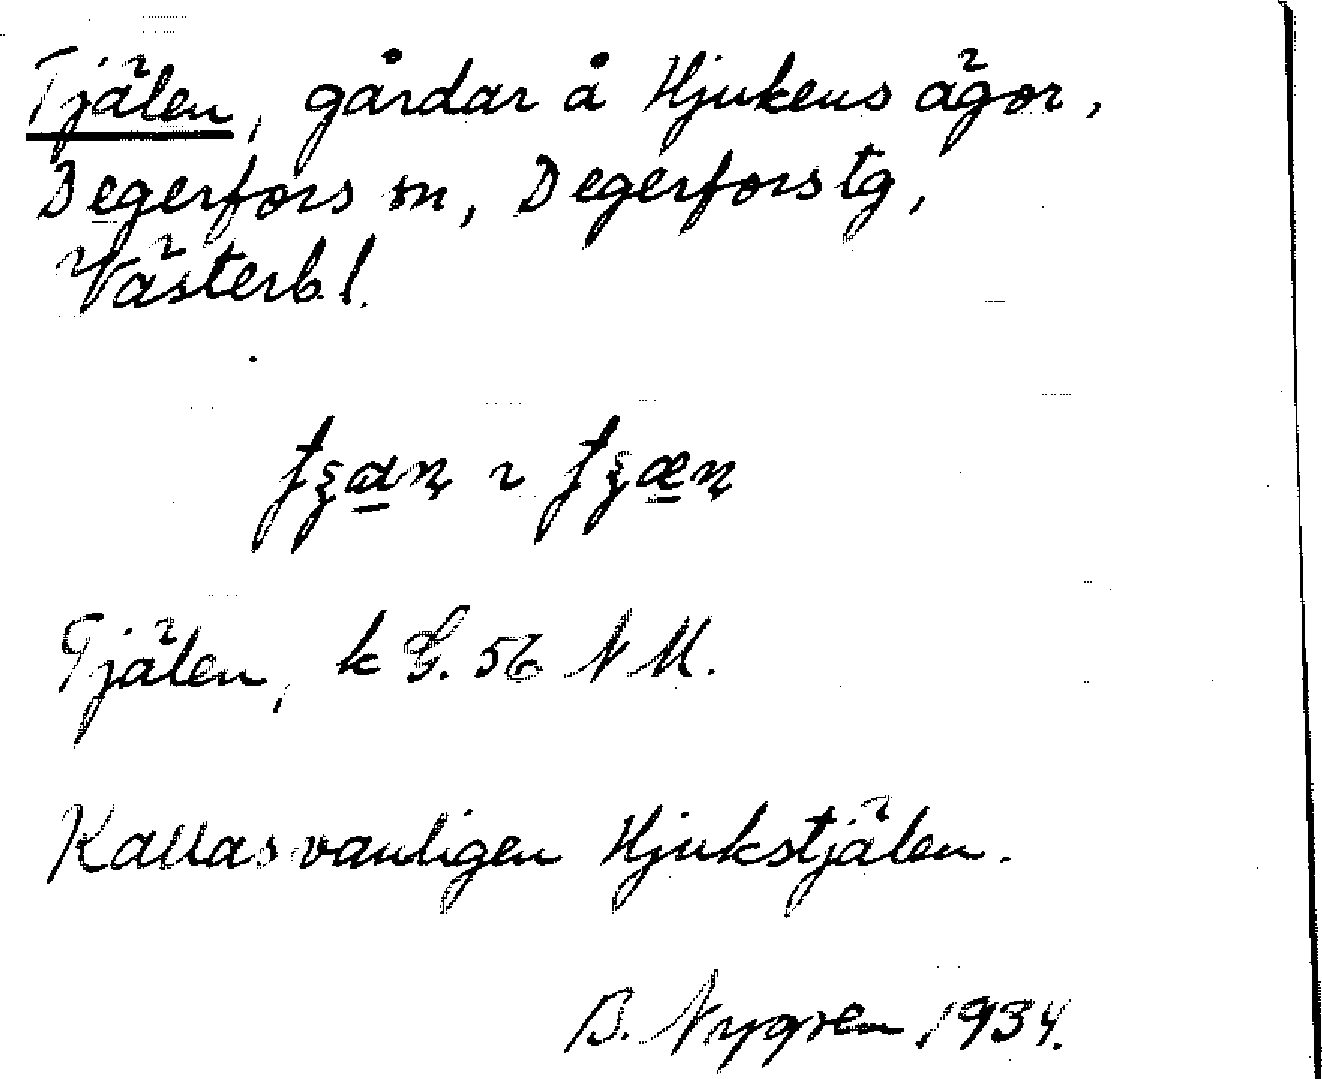 Tjälen, gårdar å Hjukens ägor,
Degerfors sn, Degerfors tg,
Västerb. l.
Tjälen, k G. 56 NM.
Kallas vanligen Hjukstjälen.
B. Nygren 1934.